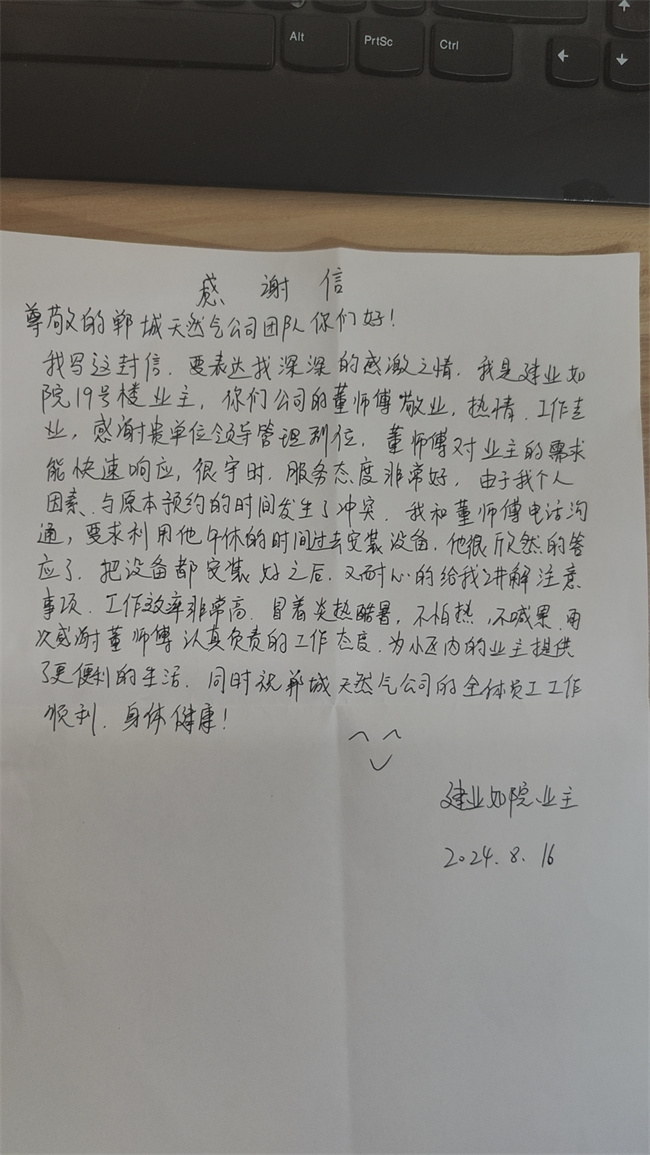 Alt
PrtSc
Ctrl
感谢信
尊敬的郸城天然气公司团队你们好!
我写这封信,要表达我深深的感激之情,我是建业如
院19号楼业主,你们公司的董师傅敬业,热情、工作专
业,感谢贵单位领导管理到位,董师傅对业主的需求
能快速响应,很守时,服务态度非常好,由于我个人
因素、与原本预约的时间发生了冲突、我和董师傅电话沟
通,要求利用他午休的时间过去安装设备,他很欣然的答
应了,把设备都安装好之后,又耐心的给我讲解注意
事项、工作效率非常高,冒着炎热酷暑,不怕热,不喊累,再
次感谢董师傅认真负责的工作态度、为小区内的业主提供
了更便利的生活,同时祝郸城天然气公司的全体员工工作
顺利、身体健康!
建业如院业主
2024.8.16